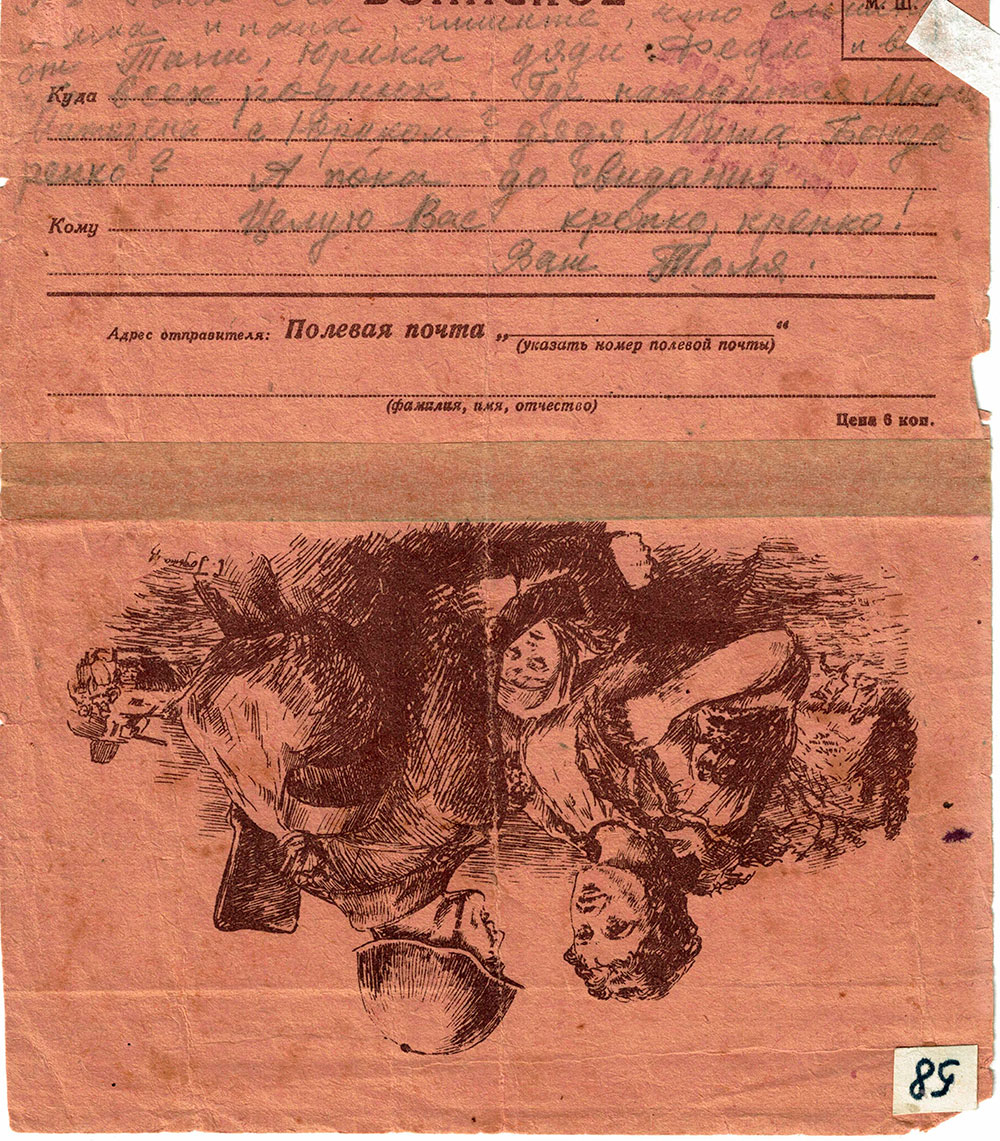 ВОИНСКОЕ
М. Ш.
мама и папа, пишите, что слышно
от Тани, Юрика дяди Феди и
Куда всех родных. Где
с Юриком? дядя Миша Бонда-
ренко? А пока до свидания.
Кому Целую Вас крепко, крепко!
Ваш Толя.
Адрес отправителя: Полевая почта „ “
(указать номер полевой почты)
(фамилия, имя, отчество)
Цена 6 коп.
58